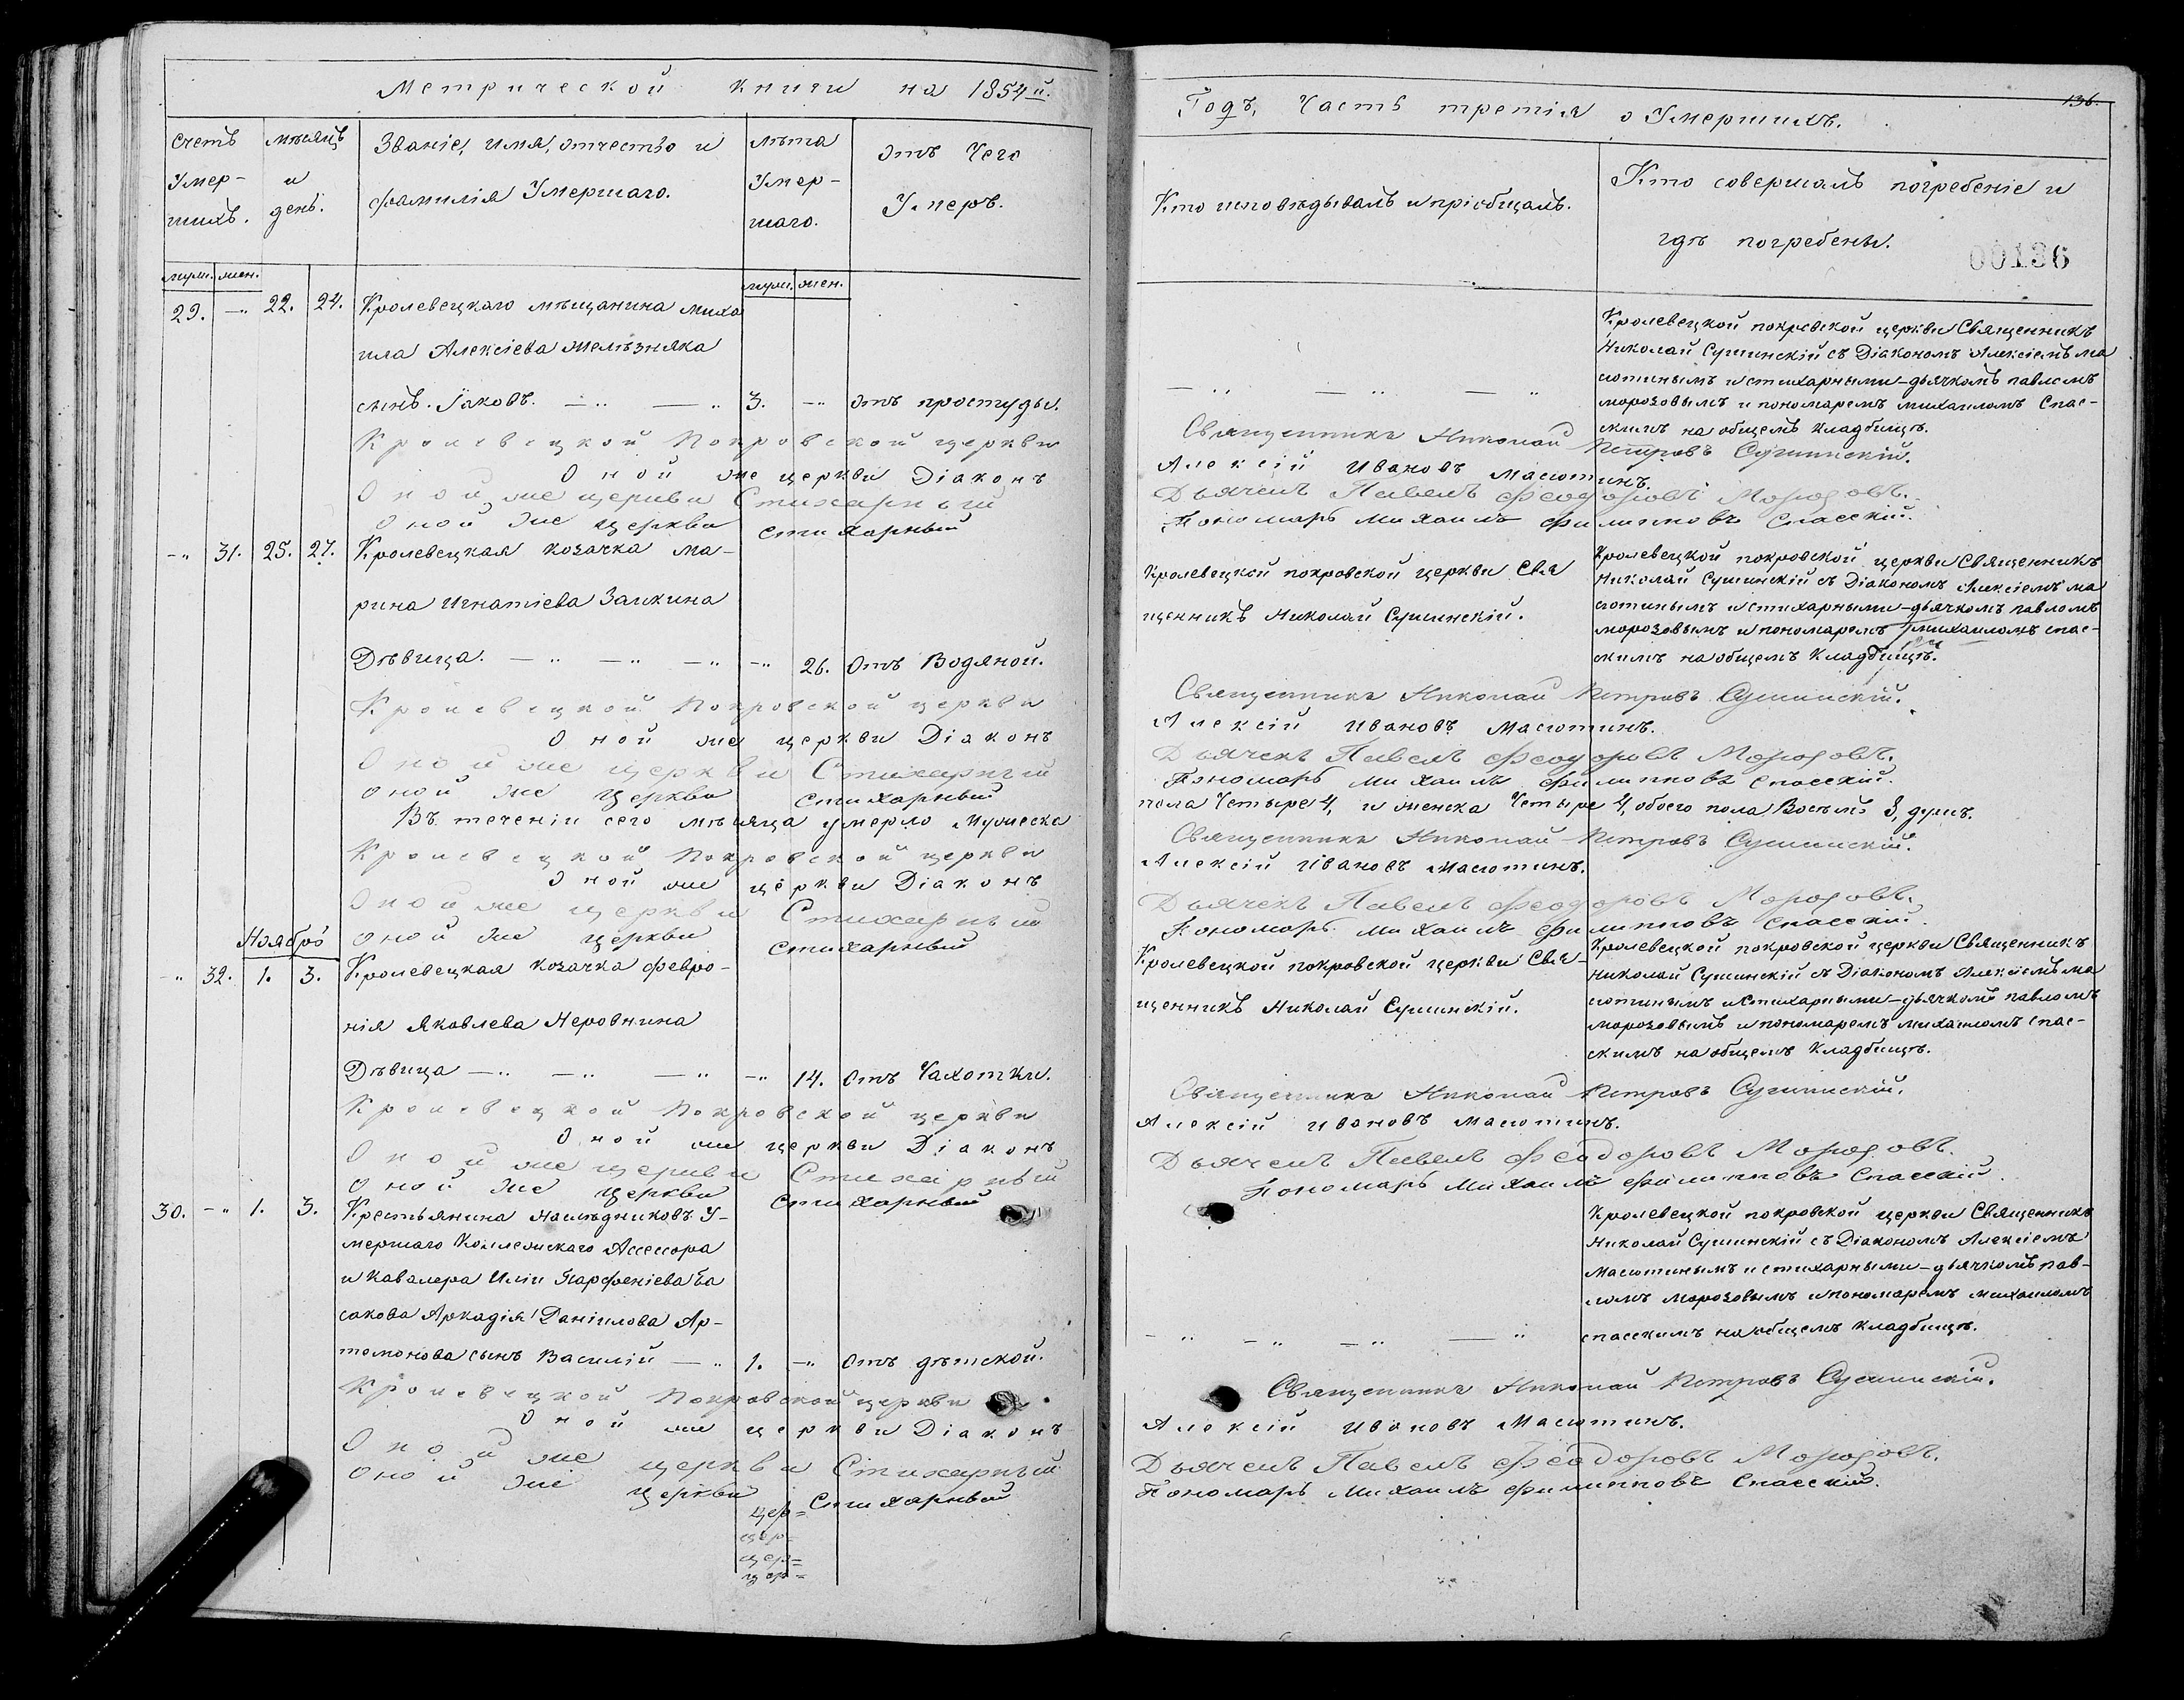 Метрической книги на 1854й.
Счетъ Умер- шихъ.
мѣсяцъ и день.
Званіе, имя, отчество и фамилія Умершаго.
лѣта Умер- шаго.
отъ Чего Умеръ.
муж. жен.
муж. жен.
29. -„ 22. 24. Кролевецкаго мѣщанина миха
ила Алексіева Желѣзняка
сынъ. Іаковъ. — „ — „ 3. -„ отъ простуды.
Кролевецкой Покровской церкви
Оной же церкви Діаконъ
Оной же церкви Стихарный
Оной же церкви стихарный
-„ 31. 25. 27. Кролевецкая козачка ма-
рина Игнатіева Заикина
Дѣвица. — „ — „ — „ -„ 26. отъ Водяной.
Кролевецкой Покровской церкви
Оной же церкви Діаконъ
Оной же церкви Стихарный
Оной же церкви стихарный
Въ теченіи сего мѣсяца умерло Мужеска
Кролевецкой Покровской церкви
Оной же церкви Діаконъ
Оной же церкви Стихарный
Оной же церкви стихарный
Ноябрь
-„ 32. 1. 3. Кролевецкая козачка февро-
нія Яковлева Неровнина
Дѣвица — „ — „ — „ -„ 14. отъ Чахотки.
Кролевецкой Покровской церкви
Оной же церкви Діаконъ
Оной же церкви Стихарный
Оной же церкви стихарный
30. -„ 1. 3. Крестьянина Наслѣдниковъ У-
мершаго Коллежскаго Ассесора
и Кавалера Иліи Парфеніева Ба
сакова Аркадія Даніилова Ар-
тамонова сынъ Василій — „ 1. -„ отъ дѣтской.
Кролевецкой Покровской церкви
Оной же церкви Діаконъ
Оной же церкви Стихарный
Оной же церкви Стихарный
цер=
цер=
цер=
цер=
Годъ, Часть третія о Умершихъ.
136.
Кто исповѣдывалъ и пріобщалъ.
Кто совершалъ погребеніе и
гдѣ погребены.
00136
Кролевецкой покровской церкви Священникъ
Николай Сушинскій съ Діакономъ Алексіемъ ма
сютинымъ и стихарными-дьячкомъ павломъ
морозовымъ и пономаремъ михаиломъ Спас-
скимъ на общемъ кладбищѣ.
— „ — „ — „
Священникъ Николай Петровъ Сушинскій.
Алексій Ивановъ Масютинъ.
Дьячекъ Павелъ Феодоровъ Морозовъ.
Пономарь Михаилъ Филипповъ Спасскій.
Кролевецкой покровской церкви Свя
щенникъ Николай Сушинскій.
Кролевецкой покровской церкви Священникъ
Николай Сушинскій съ Діакономъ Алексіемъ ма
сютинымъ и стихарными-дьячкомъ павломъ
морозовымъ и пономаремъ михаиломъ спас-
скимъ на общемъ кладбищѣ.
Священникъ Николай Петровъ Сушинскій.
Алексій Ивановъ Масютинъ.
Дьячекъ Павелъ Феодоровъ Морозовъ.
Пономарь Михаилъ Филипповъ Спасскій.
пола Четыре 4, и женска Четыре 4, обоего пола Восемь 8, душъ.
Священникъ Николай Петровъ Сушинскій.
Алексій Ивановъ Масютинъ.
Дьячекъ Павелъ Феодоровъ Морозовъ.
Пономарь Михаилъ Филипповъ Спасскій.
Кролевецкой покровской церкви Свя-
щенникъ Николай Сушинскій.
Кролевецкой покровской церкви Священникъ
Николай Сушинскій съ Діакономъ Алексіемъ ма
сютинымъ и Стихарными-дьячкомъ павломъ
морозовымъ и пономаремъ михаиломъ Спас-
скимъ на общемъ кладбищѣ.
Священникъ Николай Петровъ Сушинскій.
Алексій Ивановъ Масютинъ.
Дьячекъ Павелъ Феодоровъ Морозовъ.
Пономарь Михаилъ Филипповъ Спасскій.
Кролевецкой покровской церкви Священникъ
Николай Сушинскій съ Діакономъ Алексіемъ
Масютинымъ и стихарными-дьячкомъ пав-
ломъ морозовымъ и пономаремъ михаиломъ
— „ — „ — „ — „ спасскимъ на общемъ кладбищѣ.
Священникъ Николай Петровъ Сушинскій.
Алексій Ивановъ Масютинъ.
Дьячекъ Павелъ Феодоровъ Морозовъ.
Пономарь Михаилъ Филипповъ Спасскій.